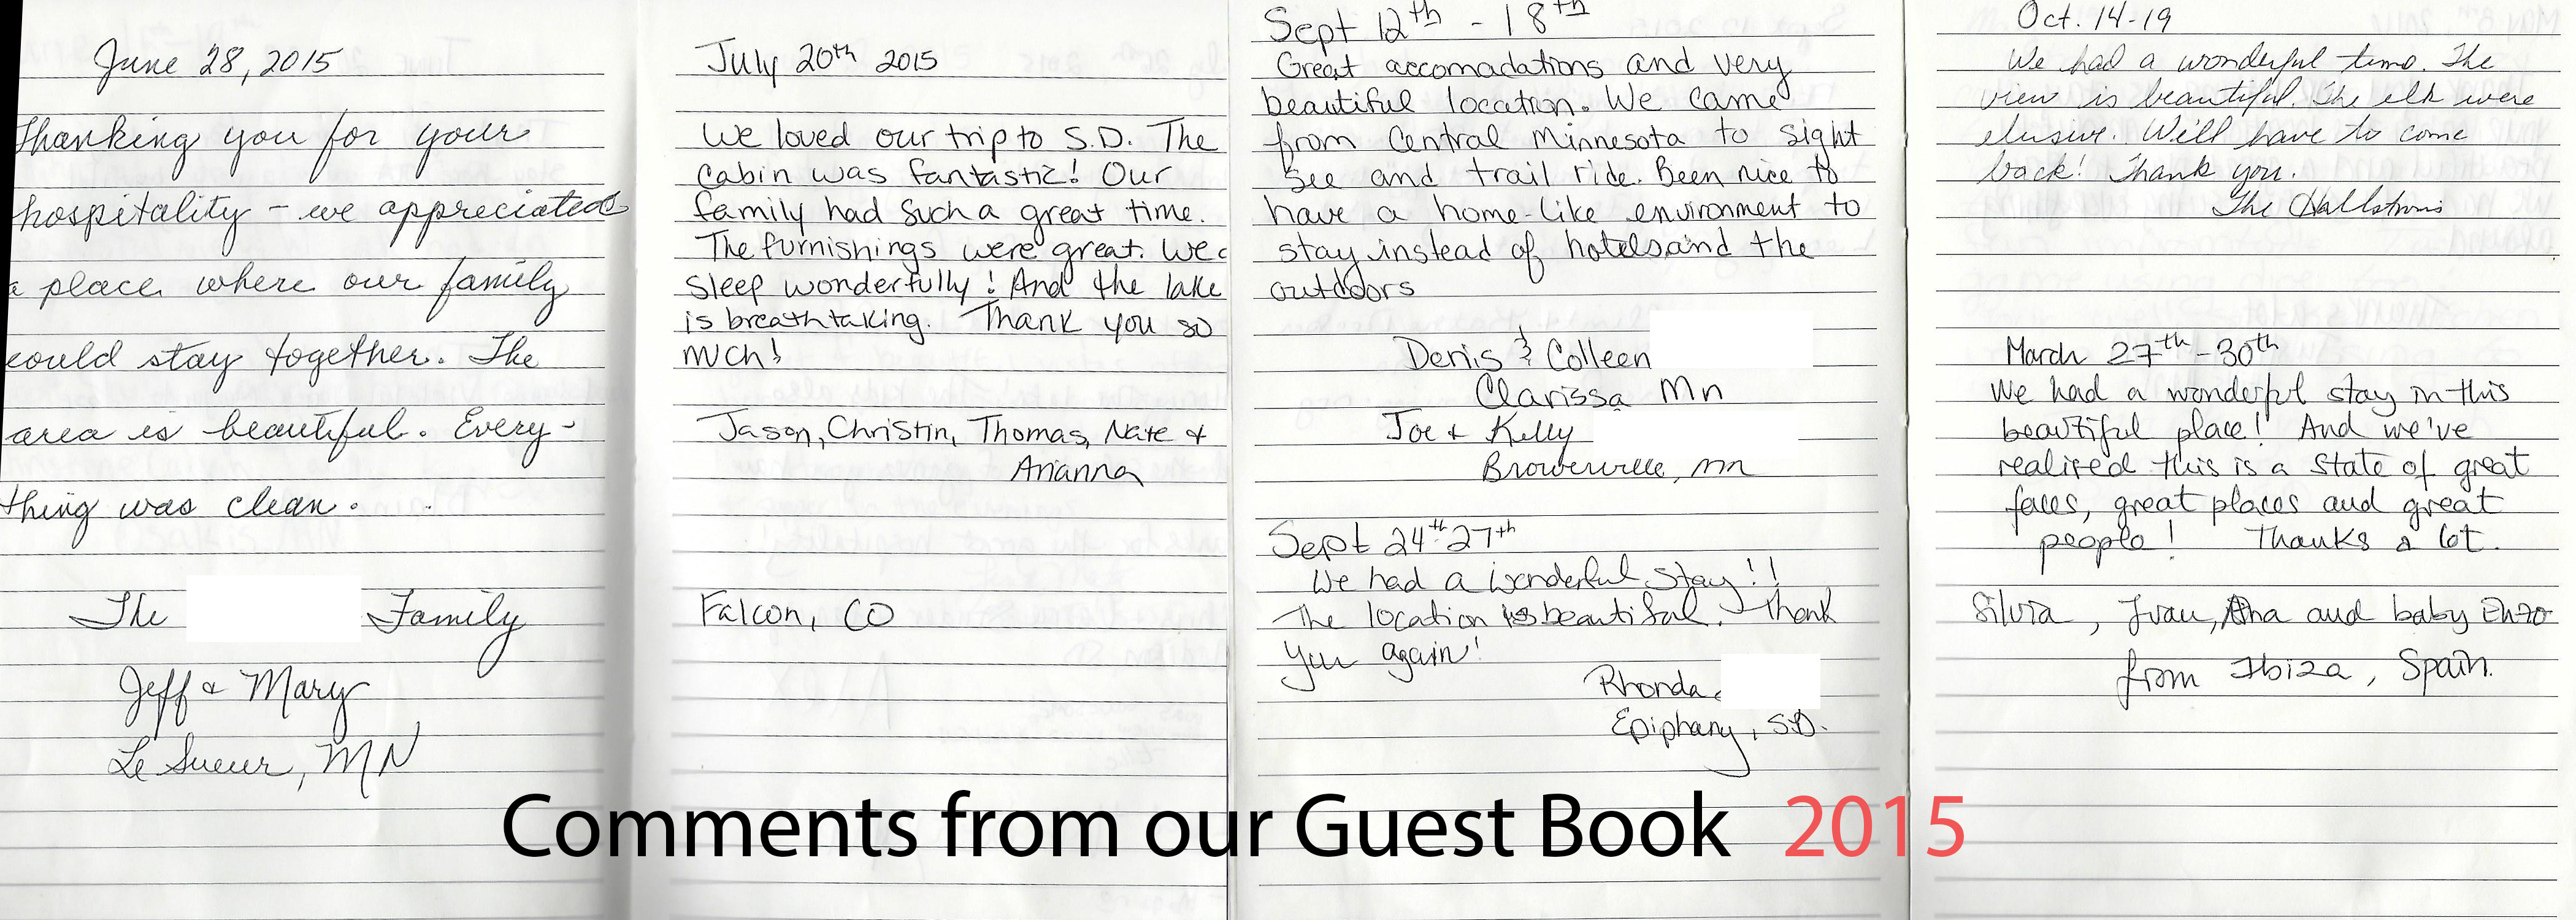 June 28, 2015
Thanking you for your
hospitality - we appreciated
a place where our family
could stay together. The
area is beautiful. Every-
thing was clean.
The Family
Jeff & Mary
Le Sueur, MN
July 20th 2015
We loved our trip to S.D. The
cabin was fantastic! Our
family had such a great time.
The furnishings were great. We
sleep wonderfully! And the lake
is breathtaking. Thank you so
much!
Jason, Christin, Thomas, Nate &
Arianna
Falcon, CO
Sept 12th - 18th
Great accomadations and very
beautiful location. We came
from Central Minnesota to sight
see and trail ride. Been nice to
have a home-like environment to
stay instead of hotels and the
outdoors
Denis & Colleen
Clarissa Mn
Joe & Kelly
Browerville, mn
Sept 24th-27th
We had a wonderful stay!!
The location is beautiful. Thank
you again!
Rhonda
Epiphany, S.D.
Oct. 14-19
We had a wonderful time. The
view is beautiful. The elk were
elusive. We'll have to come
back! Thank you.
The Hallstroms
March 27th-30th
We had a wonderful stay in this
beautiful place! And we've
realized this is a state of great
faces, great places and great
people! Thanks a lot.
Silvia, Ivan, Ana and baby Enzo
from Ibiza, Spain.
Comments from our Guest Book 2015